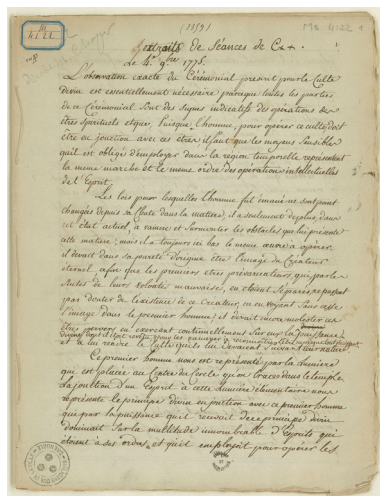 (1559)
Ms 4122
4122
extraits de Séances de C++.
Le 4. 9bre 1775.
L'observation exacte du Cérémonial prescrit pour le Culte
divin est essentiellement nécessaire parceque toutes les parties
de ce Cérémonial sont des signes indicatifs des opérations des
êtres spirituels et que, puisque l'homme, pour opérer ce culte doit
être en jonction avec ces êtres il faut que les moyens sensibles
qu'il est obligé d'employer dans la région temporelle représentent
la même marche et le même ordre des opérations intellectuelles
de l'Esprit.
Les loix pour lesquelles l'homme fut émané ne sont point
changées depuis sa chute dans la matière; il a seulement de plus, dans
cet état actuel, à vaincre et surmonter les obstacles que lui présente
cette matière; mais il a toujours ici bas le même œuvre à opérer.
il devait dans sa pureté d'origine être l'image du Créateur
éternel afin que les premiers êtres prévaricateurs, qui, par les
suites de leur volonté mauvaise, en étoient séparés, ne pussent
pas douter de l'existence de ce Créateur, en en voyant sans cesse
l'image dans le premier homme; il devait encore molester ces
êtres pervers en exerçant continuellement sur eux la puissance
et à lui rendre le culte qu'ils lui devaient suivant leur nature
Ce premier homme nous est représenté par la lumière
qui est placée au Centre du Cercle qu'on trace dans le temple.
La jonction d'un Esprit à cette lumière élémentaire nous
représente le principe divin en jonction avec ce premier homme
qui par la puissance qu'il recevait de ce principe divin
dominait sur la multitude innombrable d'Esprits qui
étoient à ses ordres et qu'il employait pour opérer les